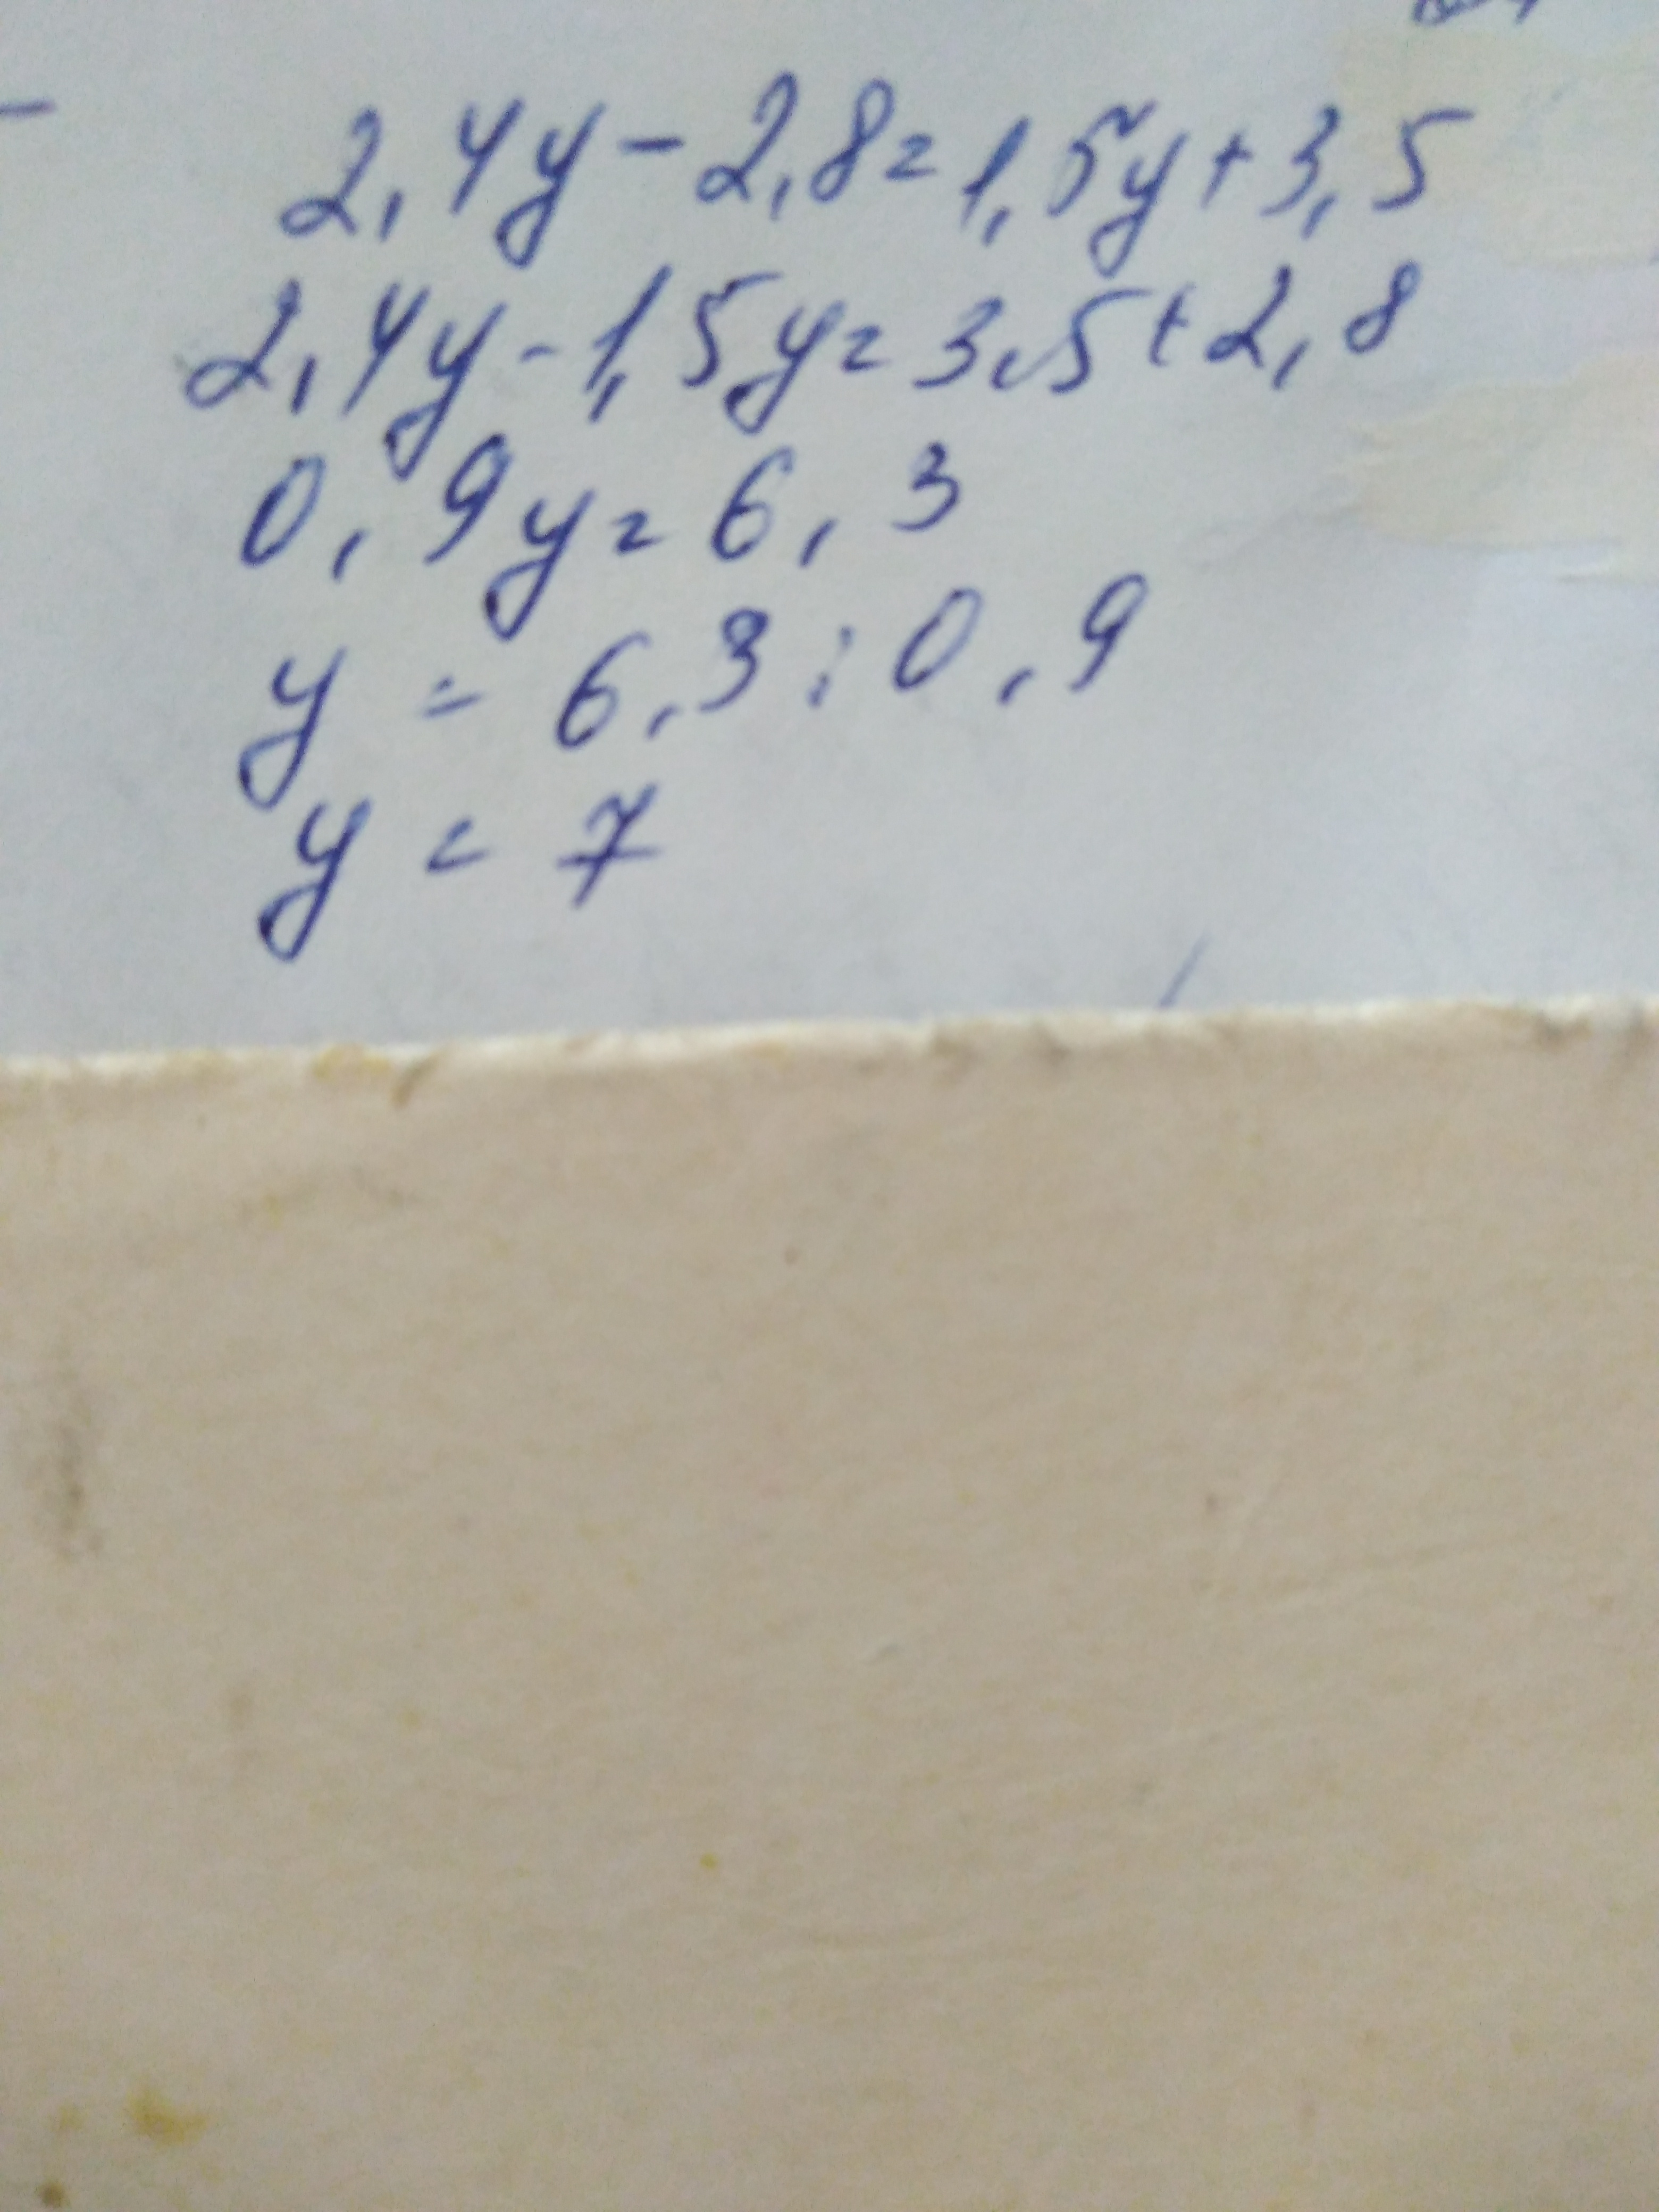 2,4y-2,8=1,5y+3,5
2,4y-1,5y=3,5+2,8
0,9y=6,3
y = 6,3:0,9
y = 7